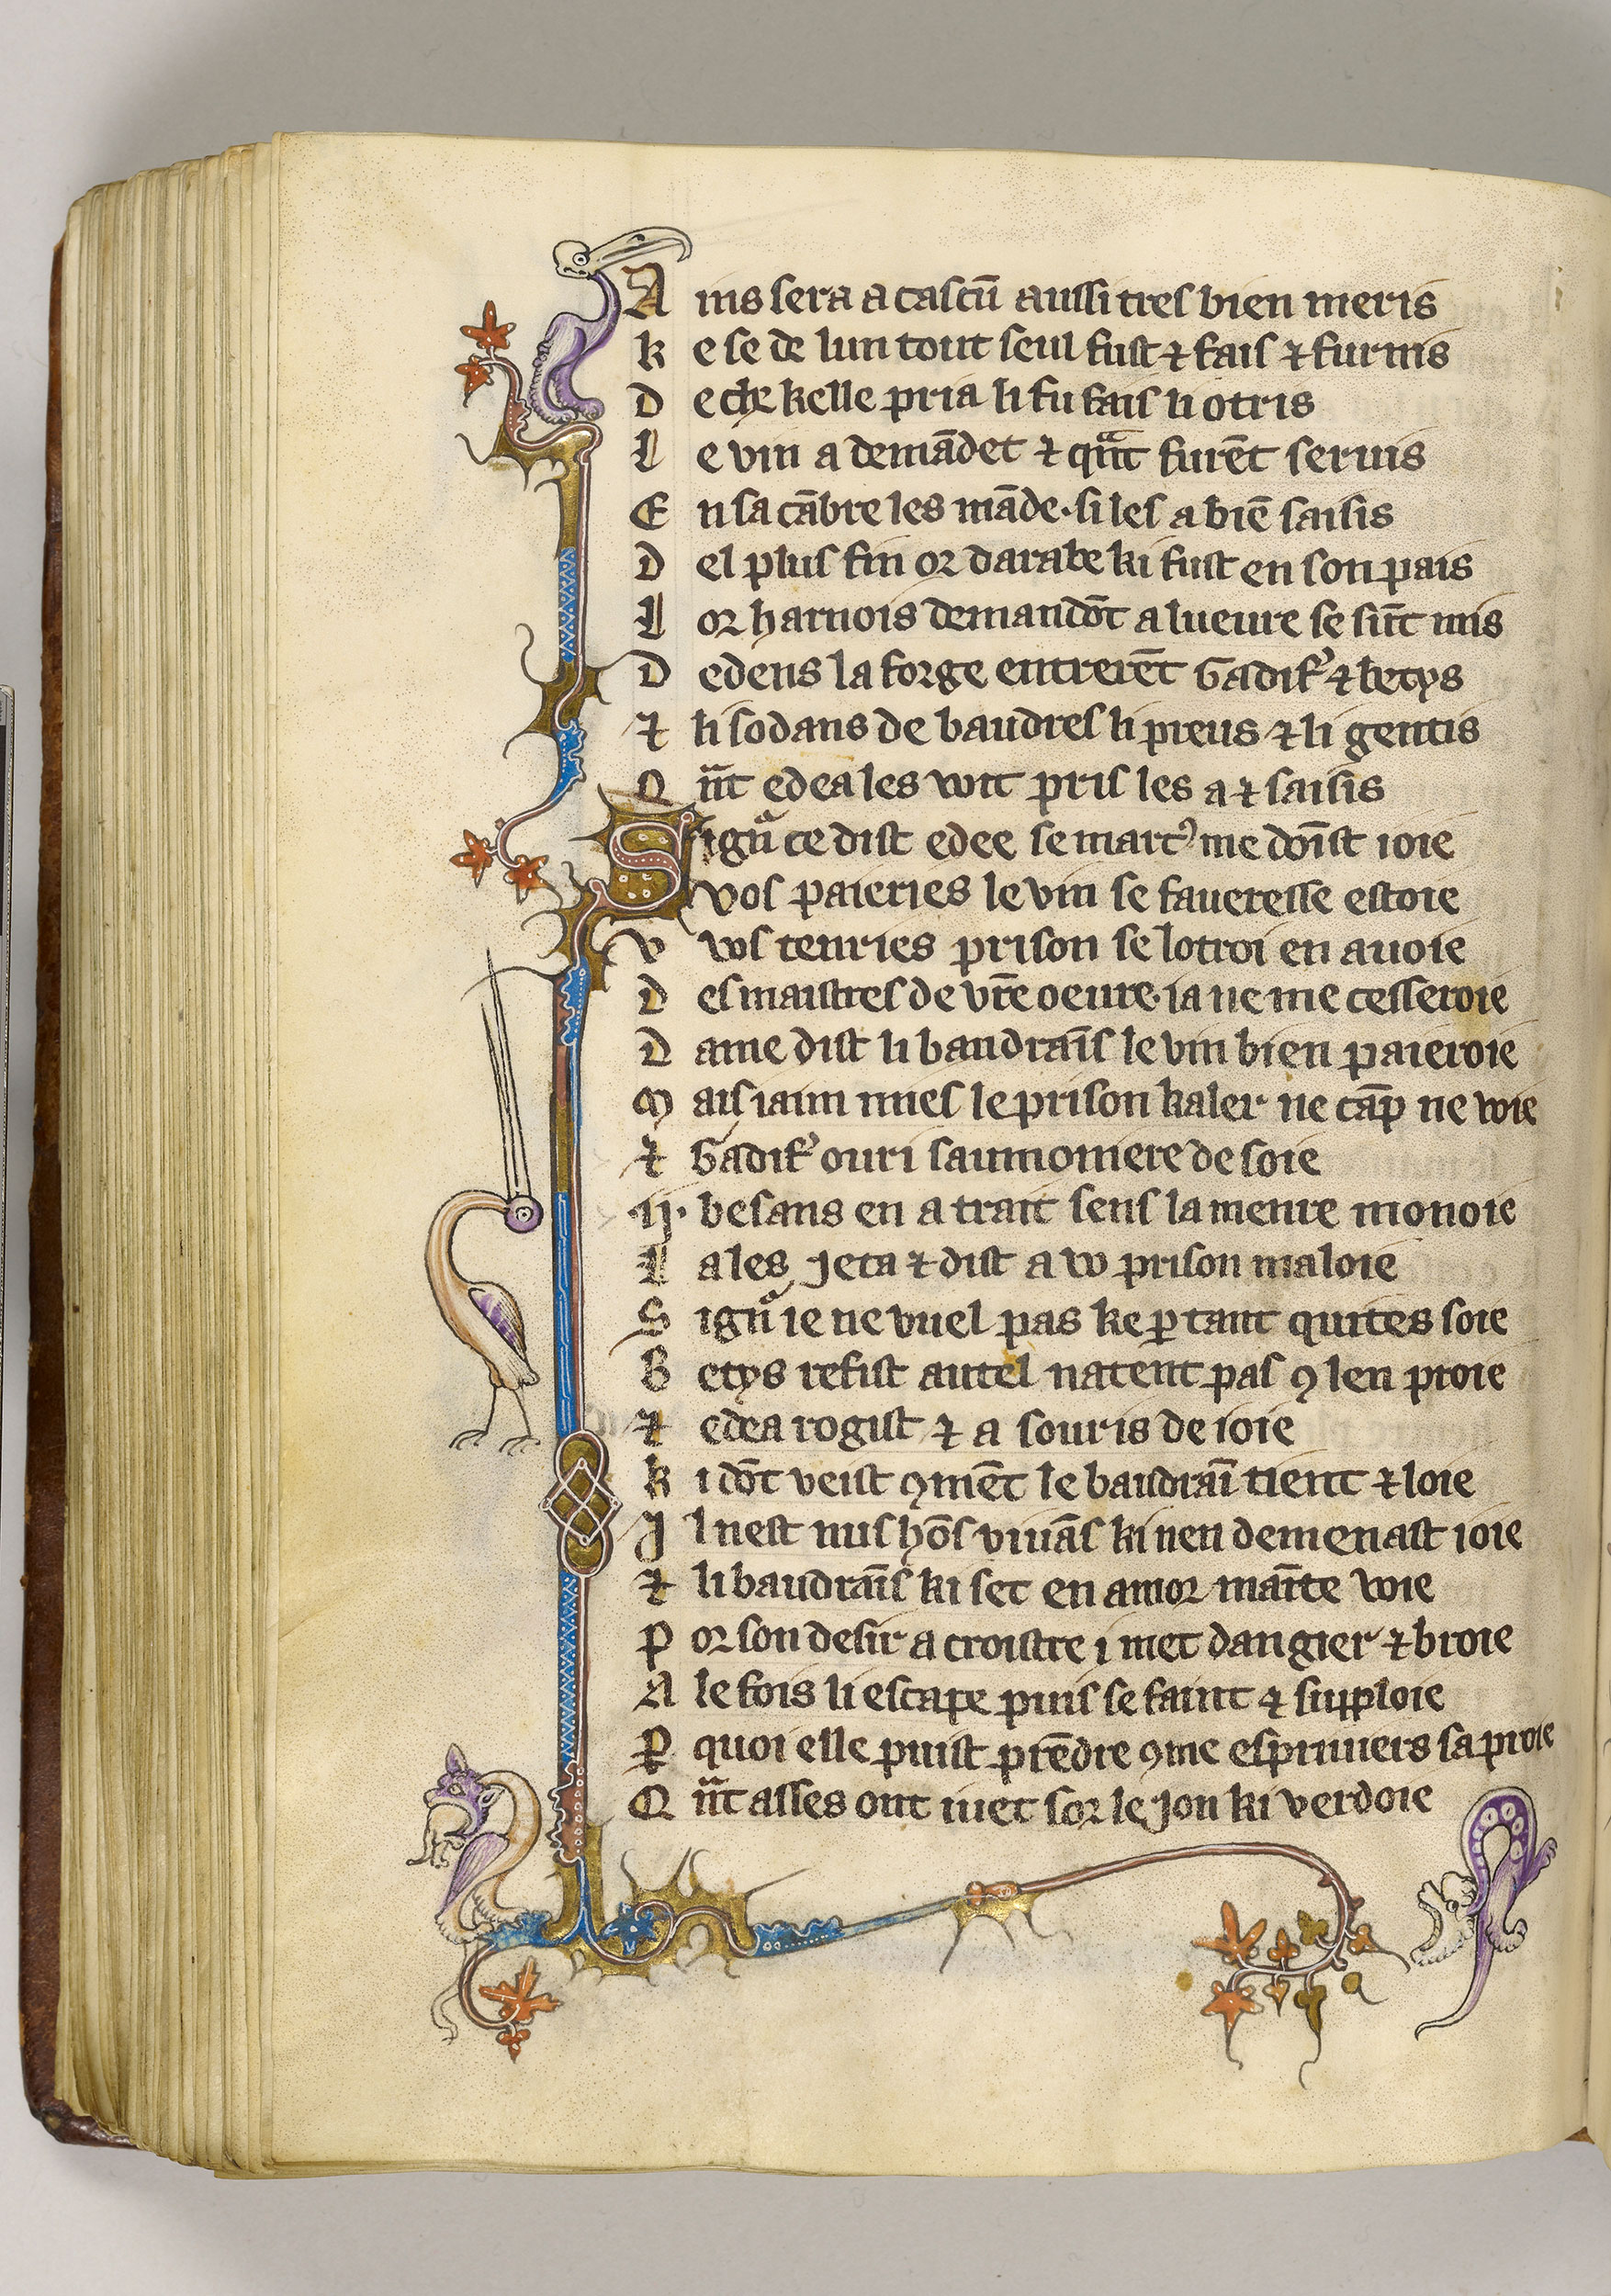 A ins sera a cascū aussi tres bien meris
k e se de lun tout seul fust ⁊ fais ⁊ furnis
D e che kelle pria li fu fais li otris
L e vin a demādet ⁊ qᵃnt furēt seruis
E n sa cābre les māde · si les a biē saisis
D el plus fin or darabe ki fust en son pais
L or harnois demandōt a lueure se sūt mis
D edens la forge entrerēt Gadif᾽ ⁊ betys
⁊ li sodans de baudres li preus ⁊ li gentis
Q ᵃnt edea les voit pris les a ⁊ saisis
S ignᵒ ce dist edee se mart᾽ me dōist ioie
vos paieries le vin se faueresse estoie
v vos tenries prison se lotroi en auoie
D es maistres de vr̄e oeure · ia ne me cesseroie
D ame dist li baudrāis le vin bien paieroie
M ais iaim mies le prison kaler ne cāp ne voie
⁊ Gadif᾽ ouri saumoniere de soie
·ij· besans en a trait sens la menre monoie
L a les jeta ⁊ dist a vo prison maloie
S ignᵒ ie ne vuel pas ke ꝑ tant quites soie
B etys refist autel natent pas ꝯ len proie
⁊ edea rogist ⁊ a souris de ioie
k i dōt veist ꝯmēt le baudrāi tient ⁊ loie
J l nest nus hōs viuās ki nen demenast ioie
⁊ li baudrāis ki set en amor māinte voie
P or son desir a croistre i met dangier ⁊ broie
A le fois li escape puis se faint ⁊ supploie
ꝑ quoi elle puist prēdre ꝯme espriuiers sa proie
Q ᵃnt asses ont iuet sor le jon ki verdoie